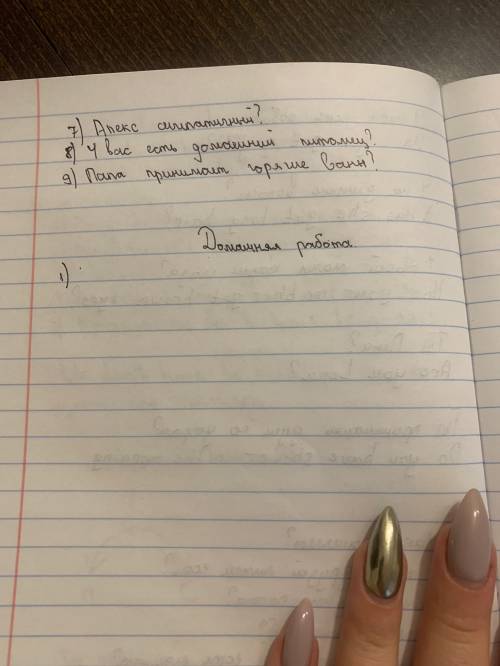 7) Алекс симпатичний?
8) У вас есть домашний питомец?
9) Папа принимает горячие ванн?
Домашняя работа.
1)